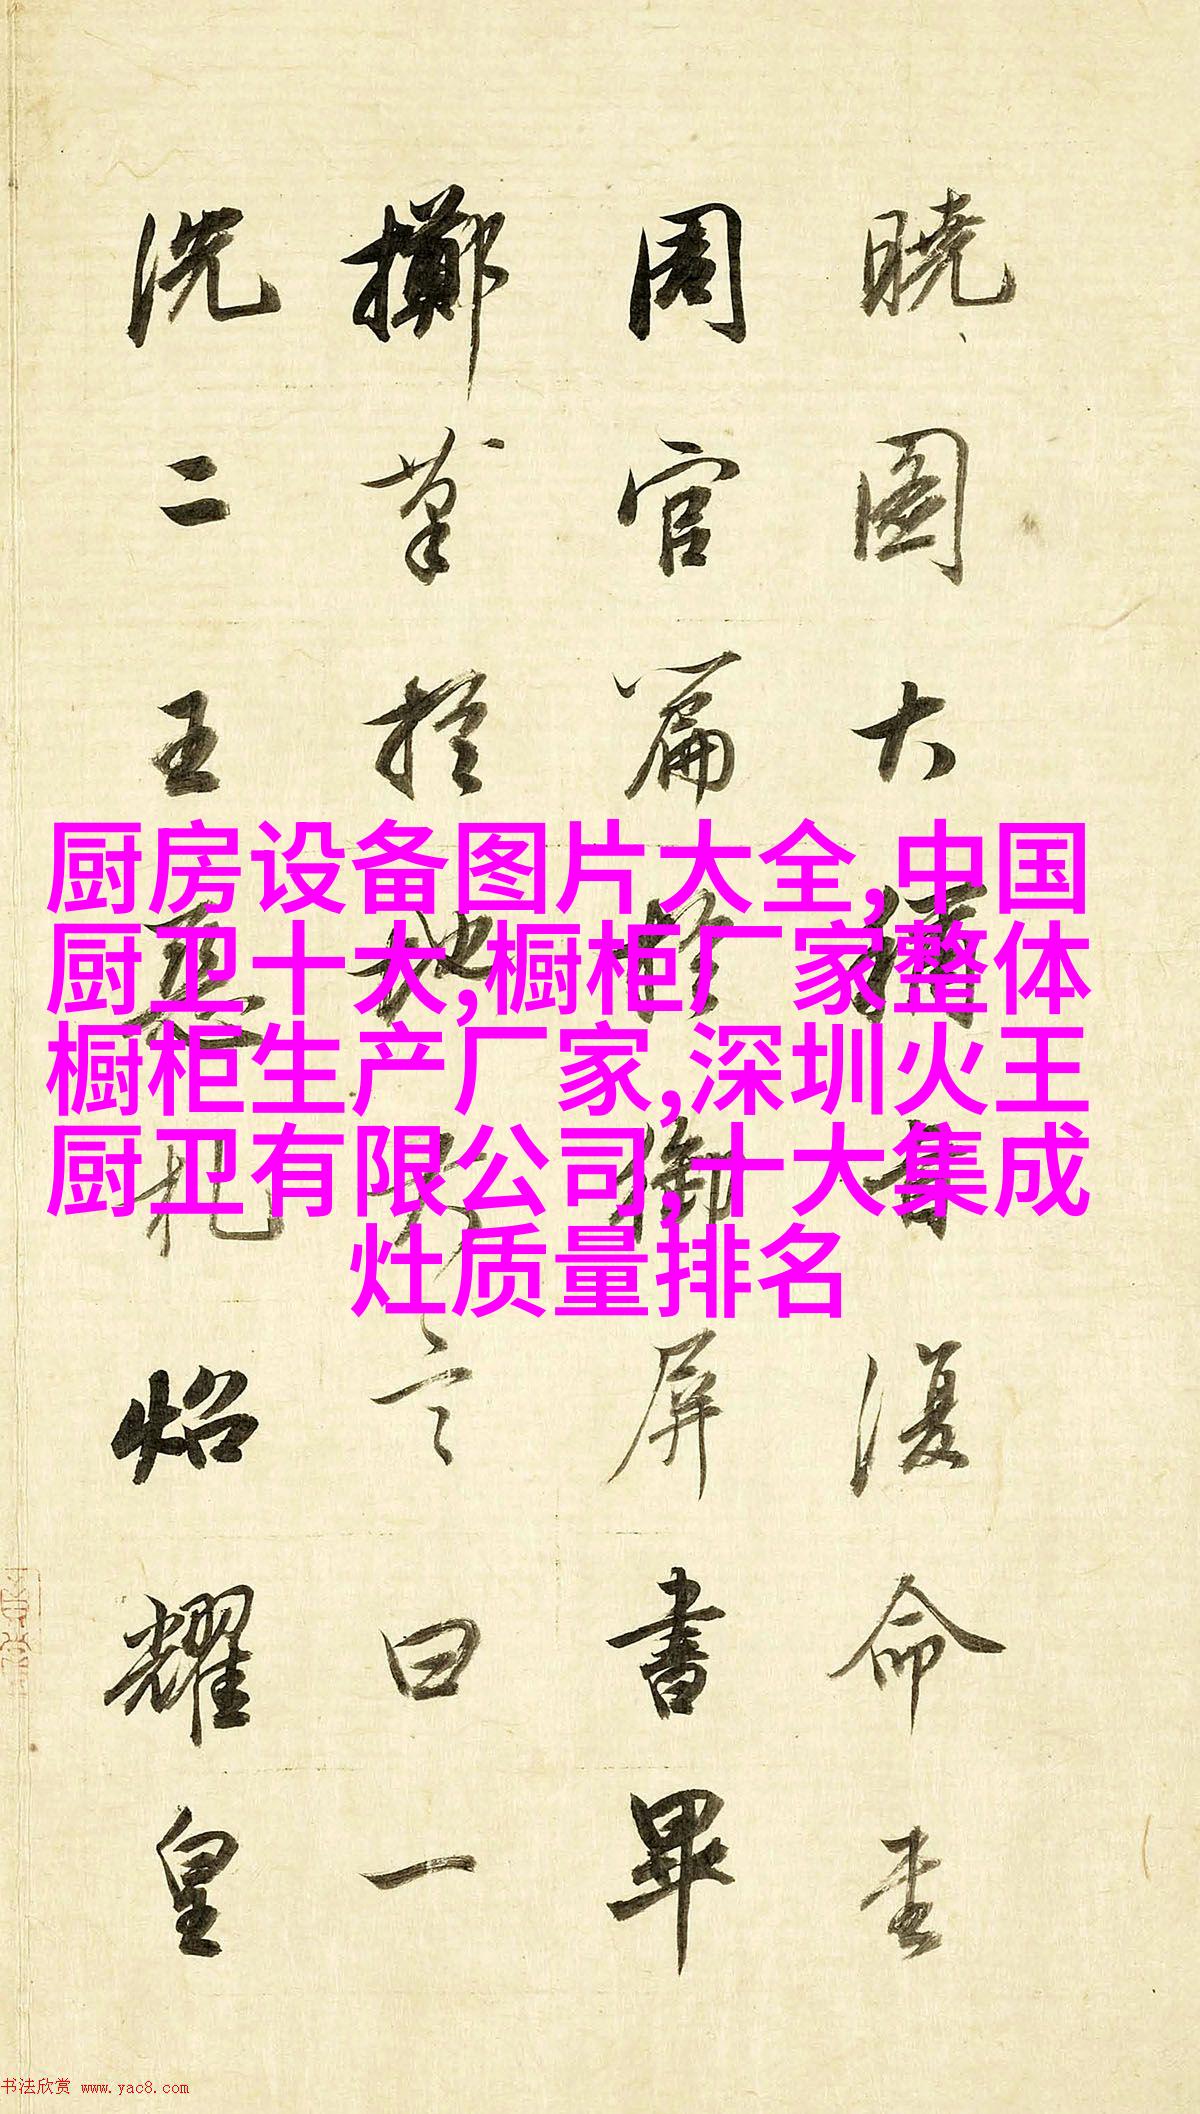 曉圖大書復命
周官篇於御屏書畢
擲筆於地大言曰一
洗二王惡札炤耀皇
厨房设备图片大全,中国
厨卫十大,橱柜厂家整体
橱柜生产厂家,深圳火王
厨卫有限公司,十大集成
灶质量排名
书法欣赏 www.yac8.com